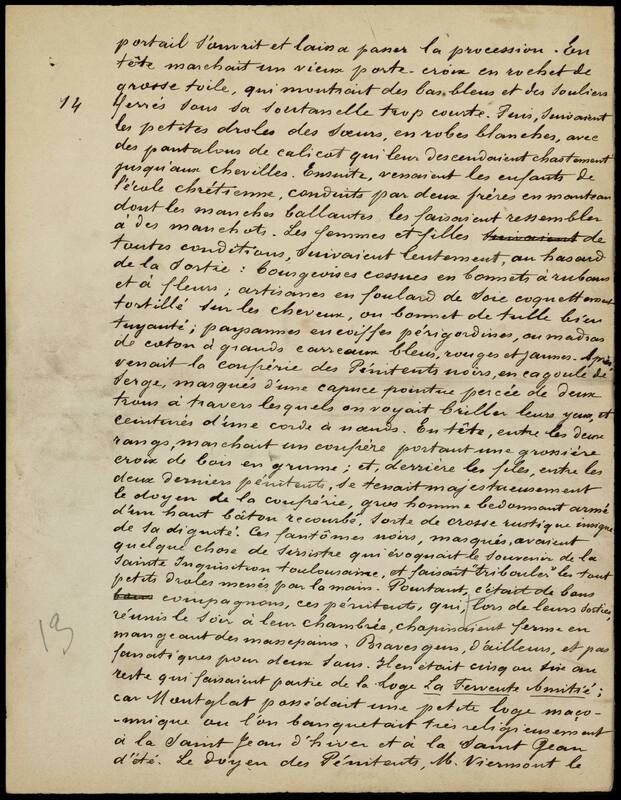 portail s'ouvrit et laissa passer la procession. En
tête marchait un vieux porte-croix en rochet de
grosse toile, qui montrait des bas bleus et des souliers
14
ferrés sous sa soutanelle trop courte. Puis, suivaient
les petites droles des Sœurs, en robes blanches, avec
des pantalons de calicot qui leur descendaient chastement
jusqu'aux chevilles. Ensuite, venaient les enfants de
l'école chrétienne, conduits par deux frères en manteau
dont les manches ballantes les faisaient ressembler
à des manchots. Les femmes et filles suivaient de
toutes conditions, suivaient lentement, au hasard
de la sortie : bourgeoises cossues en bonnets à rubans
et à fleurs ; artisanes en foulard de soie coquettement
tortillé sur les cheveux, ou bonnet de tulle bien
tuyauté ; paysannes en coiffes périgordines, ou madras
de coton à grands carreaux bleus, rouges et jaunes. Après
venait la confrérie des Pénitents noirs, en cagoule de
serge, masqués d'une capuce pointue percée de deux
trous à travers lesquels on voyait briller leurs yeux, et
ceinturés d'une corde à nœuds. En tête, entre les deux
rangs, marchait un confrère portant une grossière
croix de bois en grume ; et, derrière les files, entre les
deux derniers pénitents, se tenait majestueusement
le doyen de la confrérie, gros homme bedonnant armé
d'un haut bâton recourbé, sorte de crosse rustique insigne
de sa dignité. Ces fantômes noirs, masqués, avaient
quelque chose de sinistre qui évoquait le souvenir de la
Sainte Inquisition toulousaine, et faisait "tribouler" les tout
petits droles menés par la main. Pourtant, c'était de bons
compagnons, ces pénitents, qui, lors de leurs sorties,
13
réunis le soir à leur chambrée, chopinaient ferme en
mangeant des massepains. Braves gens, d'ailleurs, et pas
fanatiques pour deux sous. Il en était cinq ou six au
reste qui faisaient partie de la Loge La Fervente Amitié ;
car Montglat possédait une petite loge maço-
-nnique où l'on banquetait très religieusement
à la Saint Jean d'hiver et à la Saint Jean
d'été. Le doyen des Pénitents, M. Viermont le